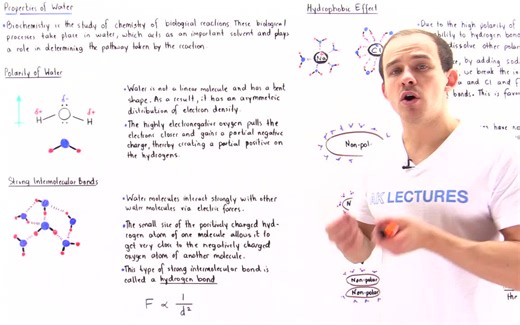 Properties of Water
•Biochemistry is the study of chemistry of biological reactions. These biological
processes take place in water, which acts as an important solvent and plays
a role in determining the pathway taken by the reaction.
Polarity of Water
δ-
δ+ δ+
H O H
•Water is not a linear molecule and has a bent
shape. As a result, it has an asymmetric
distribution of electron density.
•The highly electronegative oxygen pulls the
electrons closer and gains a partial negative
charge, thereby creating a partial positive on
the hydrogens.
Strong Intermolecular Bonds
•Water molecules interact strongly with other
water molecules via electric forces.
•The small size of the positively charged hyd-
rogen atom of one molecule allows it to
get very close to the negatively charged
oxygen atom of another molecule.
•This type of strong intermolecular bond is
called a hydrogen bond
F ∝ 1/d²
Hydrophobic Effect
Na
•Due to the high polarity of
ability to hydrogen bon
dissolve other polar
by adding sod
we break the in
and Cl and F
bonds. This is favor
have no
Non-pol
N
LECTURES
Non-polar
Non-polar